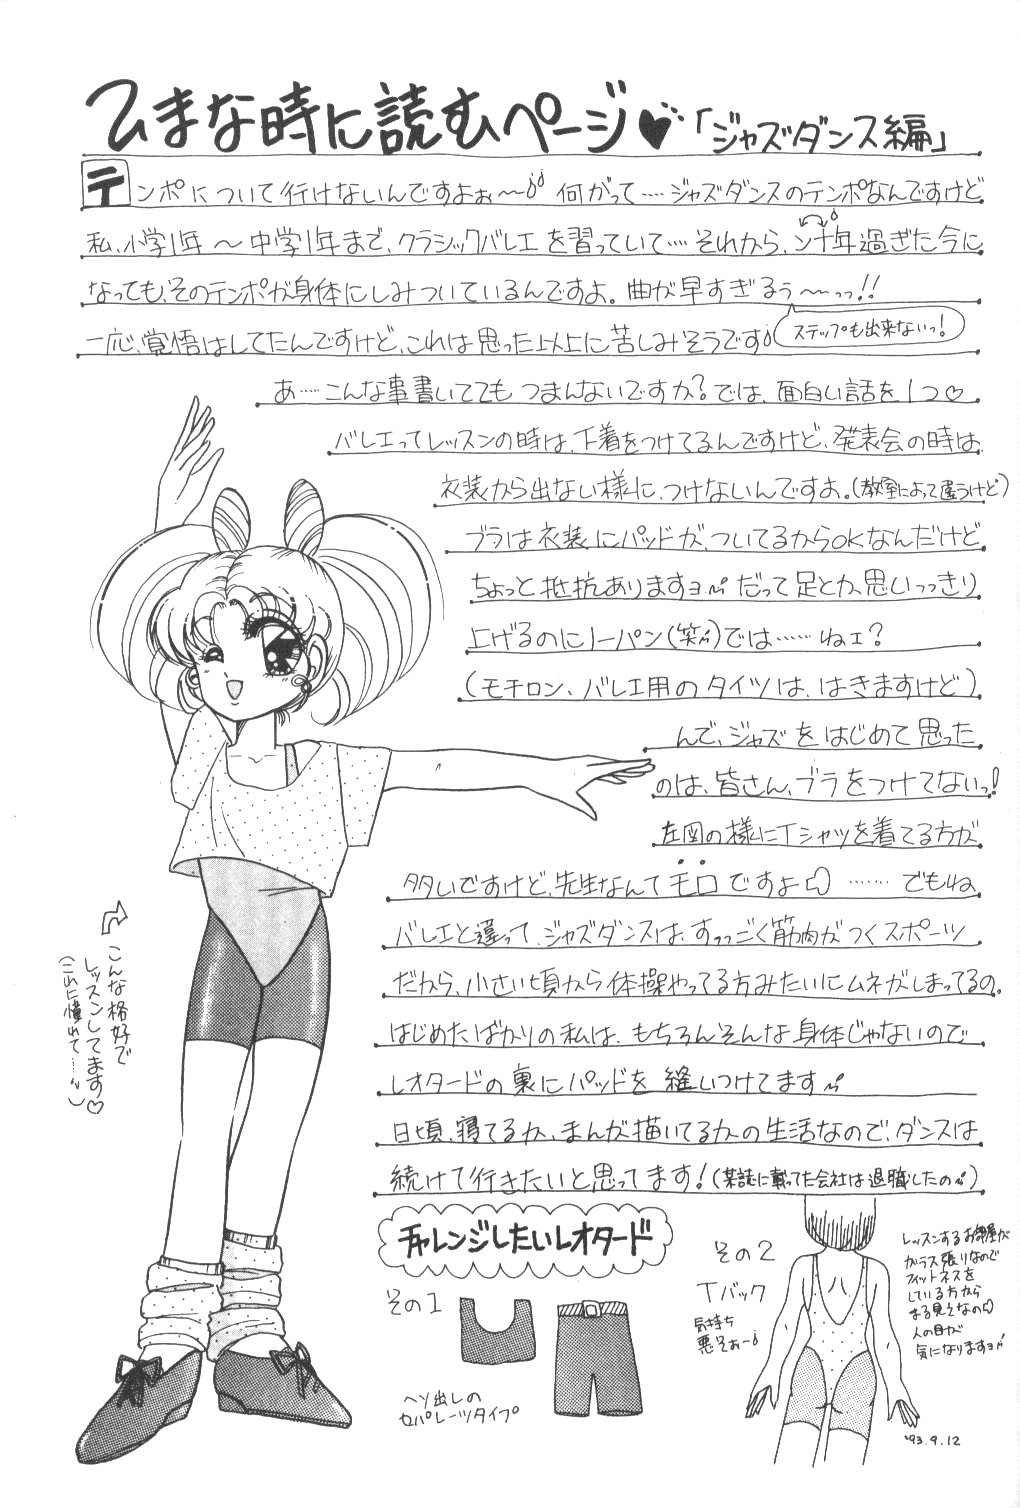 ひまな時に読むページ♥「ジャズダンス編」
テンポについて行けないんですよぉ〜 何がって……ジャズダンスのテンポなんですけど
私、小学1年〜中学1年まで、クラシックバレエを習っていて……それから、ン十年過ぎた今に
なっても、そのテンポが身体にしみついているんですよ。曲が早すぎるぅ〜っっ!!
ステップも出来ないっ!
一応、覚悟はしてたんですけど、これは思った以上に苦しみそうです
あ……こんな事書いててもつまんないですか?では、面白い話を1つ♡
バレエってレッスンの時は、下着をつけてるんですけど、発表会の時は、
衣装から出ない様に、つけないんですよ。(教室によって違うけど)
ブラは衣装にパッドが、ついてるからOKなんだけど
ちょっと抵抗ありますョ だって足とか、思いっっきり
上げるのにノーパン(笑)では……ねェ?
(モチロン、バレエ用のタイツは、はきますけど)
んで、ジャズをはじめて思った
のは、皆さん、ブラをつけてないっ!
左図の様にTシャツを着てる方が
多いですけど、先生なんてモロですよ ……でもね
バレエと違って、ジャズダンスは、すっっごく筋肉がつくスポーツ
だから、小さい頃から体操やってる方みたいにムネがしまってるの。
はじめたばかりの私は、もちろんそんな身体じゃないので
レオタードの裏にパッドを縫いつけてます
日頃、寝てるか、まんが描いてるかの生活なので、ダンスは
続けて行きたいと思ってます!(某誌に載ってた会社は退職したの)
こんな格好で
レッスンしてます♡
(これに憧れて……)
チャレンジしたいレオタード
その1
ヘソ出しの
セパレーツタイプ
その2
Tバック
気持ち
悪そぉー
レッスンするお部屋が
ガラス張りなので
フィットネスを
している方から
まる見えなの
人の目が
気になりますョ
'93.9.12